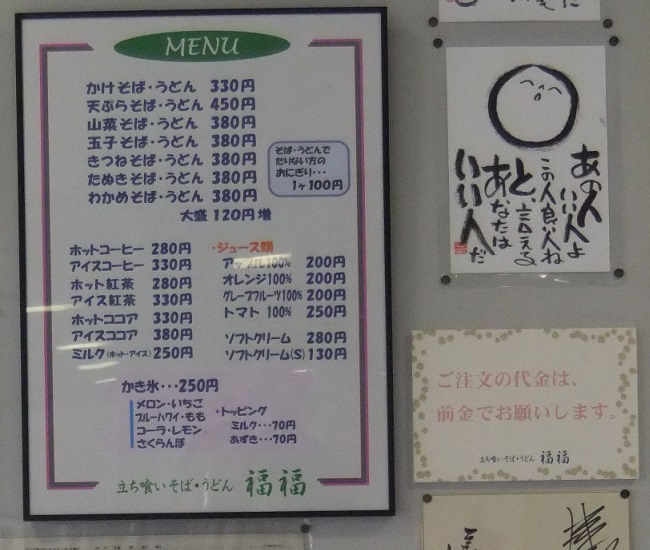 MENU
かけそば・うどん 330円
天ぷらそば・うどん 450円
山菜そば・うどん 380円
玉子そば・うどん 380円
きつねそば・うどん 380円
たぬきそば・うどん 380円
わかめそば・うどん 380円
大盛 120円増
そば・うどんで
たりない方の
おにぎり・・・
1ヶ100円
ホットコーヒー 280円
アイスコーヒー 330円
ホット紅茶 280円
アイス紅茶 330円
ホットココア 330円
アイスココア 380円
ミルク(ホット・アイス) 250円
・ジュース類
アップル100% 200円
オレンジ100% 200円
グレープフルーツ100% 200円
トマト 100% 250円
ソフトクリーム 280円
ソフトクリーム(S) 130円
かき氷・・・250円
メロン・いちご
ブルーハワイ・もも
コーラ・レモン
さくらんぼ
・トッピング
ミルク・・・70円
あずき・・・70円
立ち喰いそば・うどん 福福
あの人
いい人よ
この人良い人ね
と、言える
あなたは
いい人だ
ご注文の代金は、
前金でお願いします。
立ち喰いそば・うどん 福福